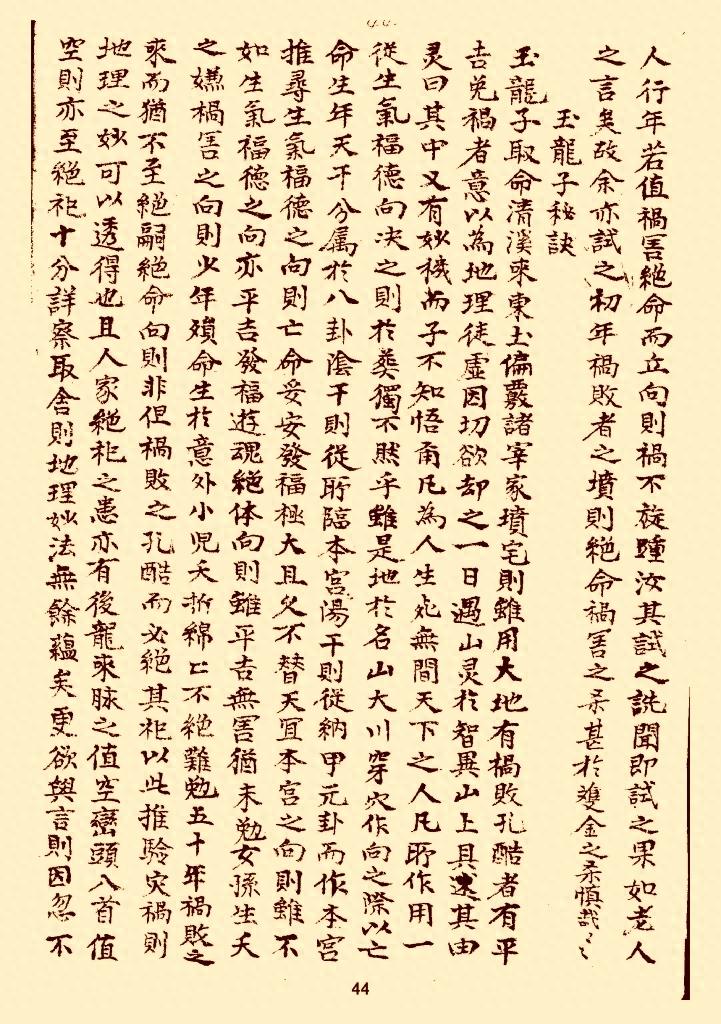 人行年若值禍害絶命而立向則禍不旋踵汝其試之訖聞即試之果如老人
之言矣故余亦試之初年禍敗者之墳則絶命禍害之柔甚於雙金之柔慎哉〻〻
玉龍子秘訣
玉龍子取命清溪來東土偏覈諸宰家墳宅則雖用大地有禍敗孔酷者有平
吉免禍者意以為地理徒虛因切欲却之一日遇山灵於智異山上具述其由
灵曰其中又有妙機而子不知悟甭凡為人生死無間天下之人凡所作用一
從生氣福德向决之則於葬獨不然乎雖是地於名山大川穿穴作向之際以亡
命生年天干分属於八卦陰干則從所臨本宮陽干則從納甲元卦而作本宮
推尋生氣福德之向則亡命妥安發福極大且久不替天宜本宮之向則雖不
如生氣福德之向亦平吉發福遊魂絶体向則雖平吉無害猶未勉女孫生夭
之嫌禍害之向則少年殞命生於意外小児夭折綿〻不絶難勉五十年禍敗之
來而猶不至絶嗣絶命向則非但禍敗之孔酷而必絶其祀以此推驗灾禍則
地理之妙可以透得也且人家絶祀之患亦有後龍來脉之值空巒頭八首值
空則亦至絶祀十分詳察取舍則地理妙法無餘蘊矣更欲與言則因忽不
44